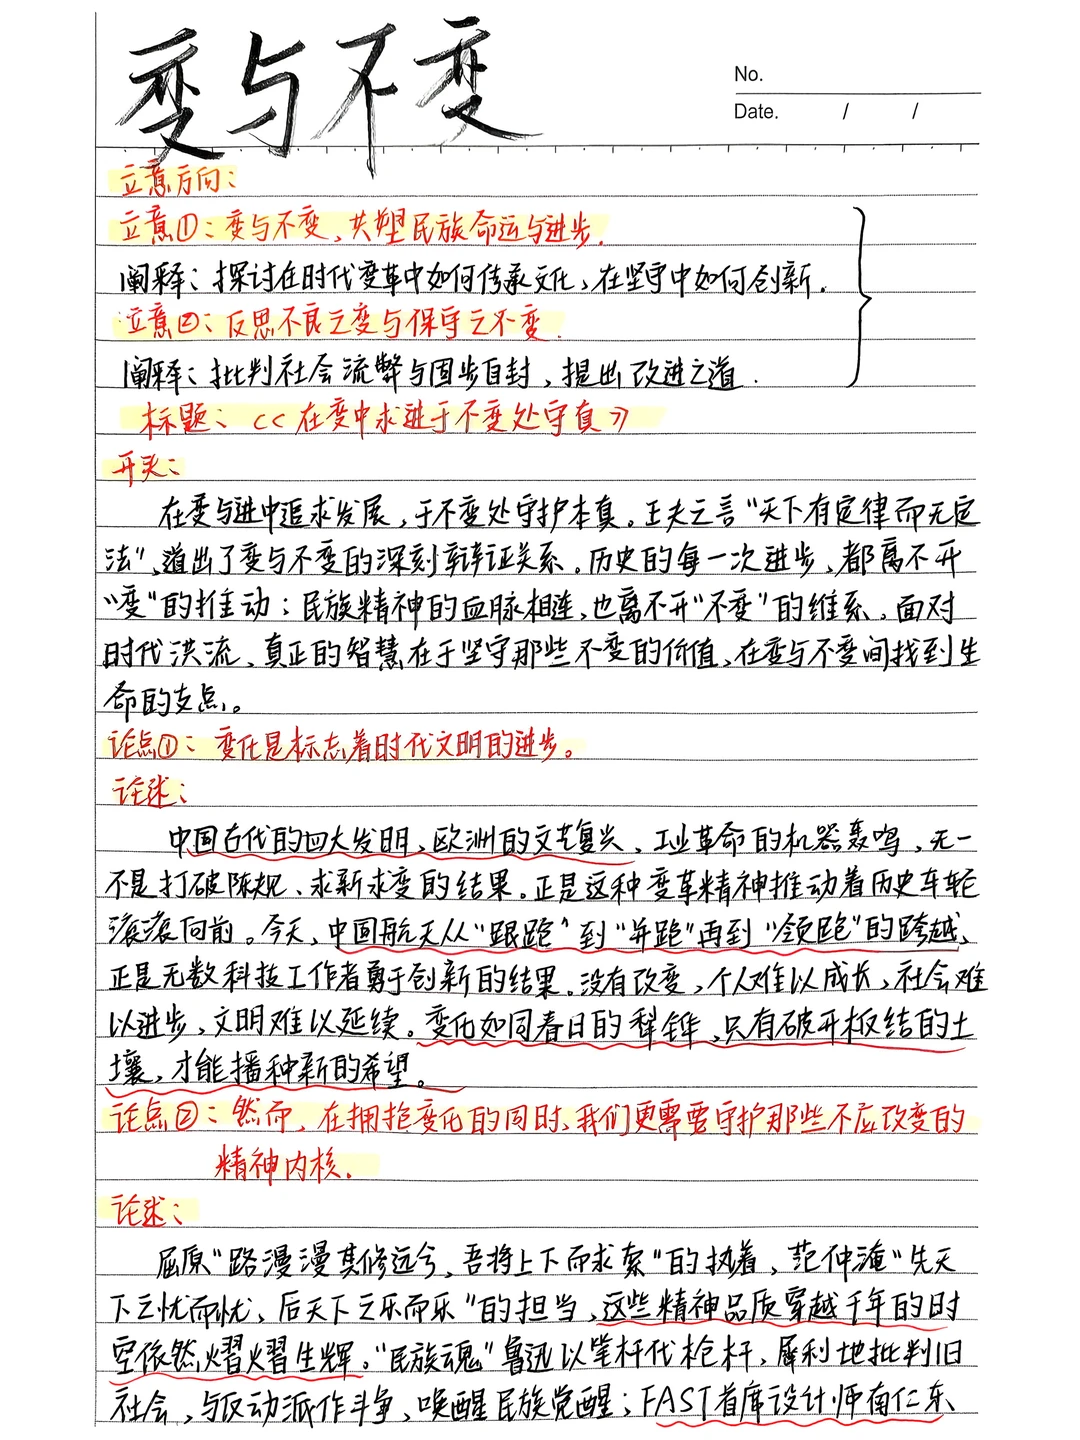 变与不变
No.
Date. / /
立意方向：
立意①：变与不变，共塑民族命运与进步.
阐释：探讨在时代变革中如何传承文化，在坚守中如何创新.
立意②：反思不良之变与保守之不变.
阐释：批判社会流弊与固步自封，提出改进之道.
标题：《在变中求进于不变处守真》
开头：
在变与进中追求发展，于不变处守护本真。王夫之言“天下有定律而无定
法”，道出了变与不变的深刻辩证关系。历史的每一次进步，都离不开
“变”的推动；民族精神的血脉相连，也离不开“不变”的维系。面对
时代洪流，真正的智慧在于坚守那些不变的价值，在变与不变间找到生
命的支点。
论点①：变化是标志着时代文明的进步。
论述：
中国古代的四大发明，欧洲的文艺复兴，工业革命的机器轰鸣，无一
不是打破陈规、求新求变的结果。正是这种变革精神推动着历史车轮
滚滚向前。今天，中国航天从“跟跑”到“并跑”再到“领跑”的跨越，
正是无数科技工作者勇于创新的结果。没有改变，个人难以成长，社会难
以进步，文明难以延续。变化如同春日的犁铧，只有破开板结的土
壤，才能播种新的希望。
论点②：然而，在拥抱变化的同时，我们更需要守护那些不应改变的
精神内核.
论述：
屈原“路漫漫其修远兮，吾将上下而求索”的执着，范仲淹“先天
下之忧而忧，后天下之乐而乐”的担当，这些精神品质穿越千年的时
空依然熠熠生辉。“民族魂”鲁迅以笔杆代枪杆，犀利地批判旧
社会，与反动派作斗争，唤醒民族觉醒；FAST首席设计师南仁东